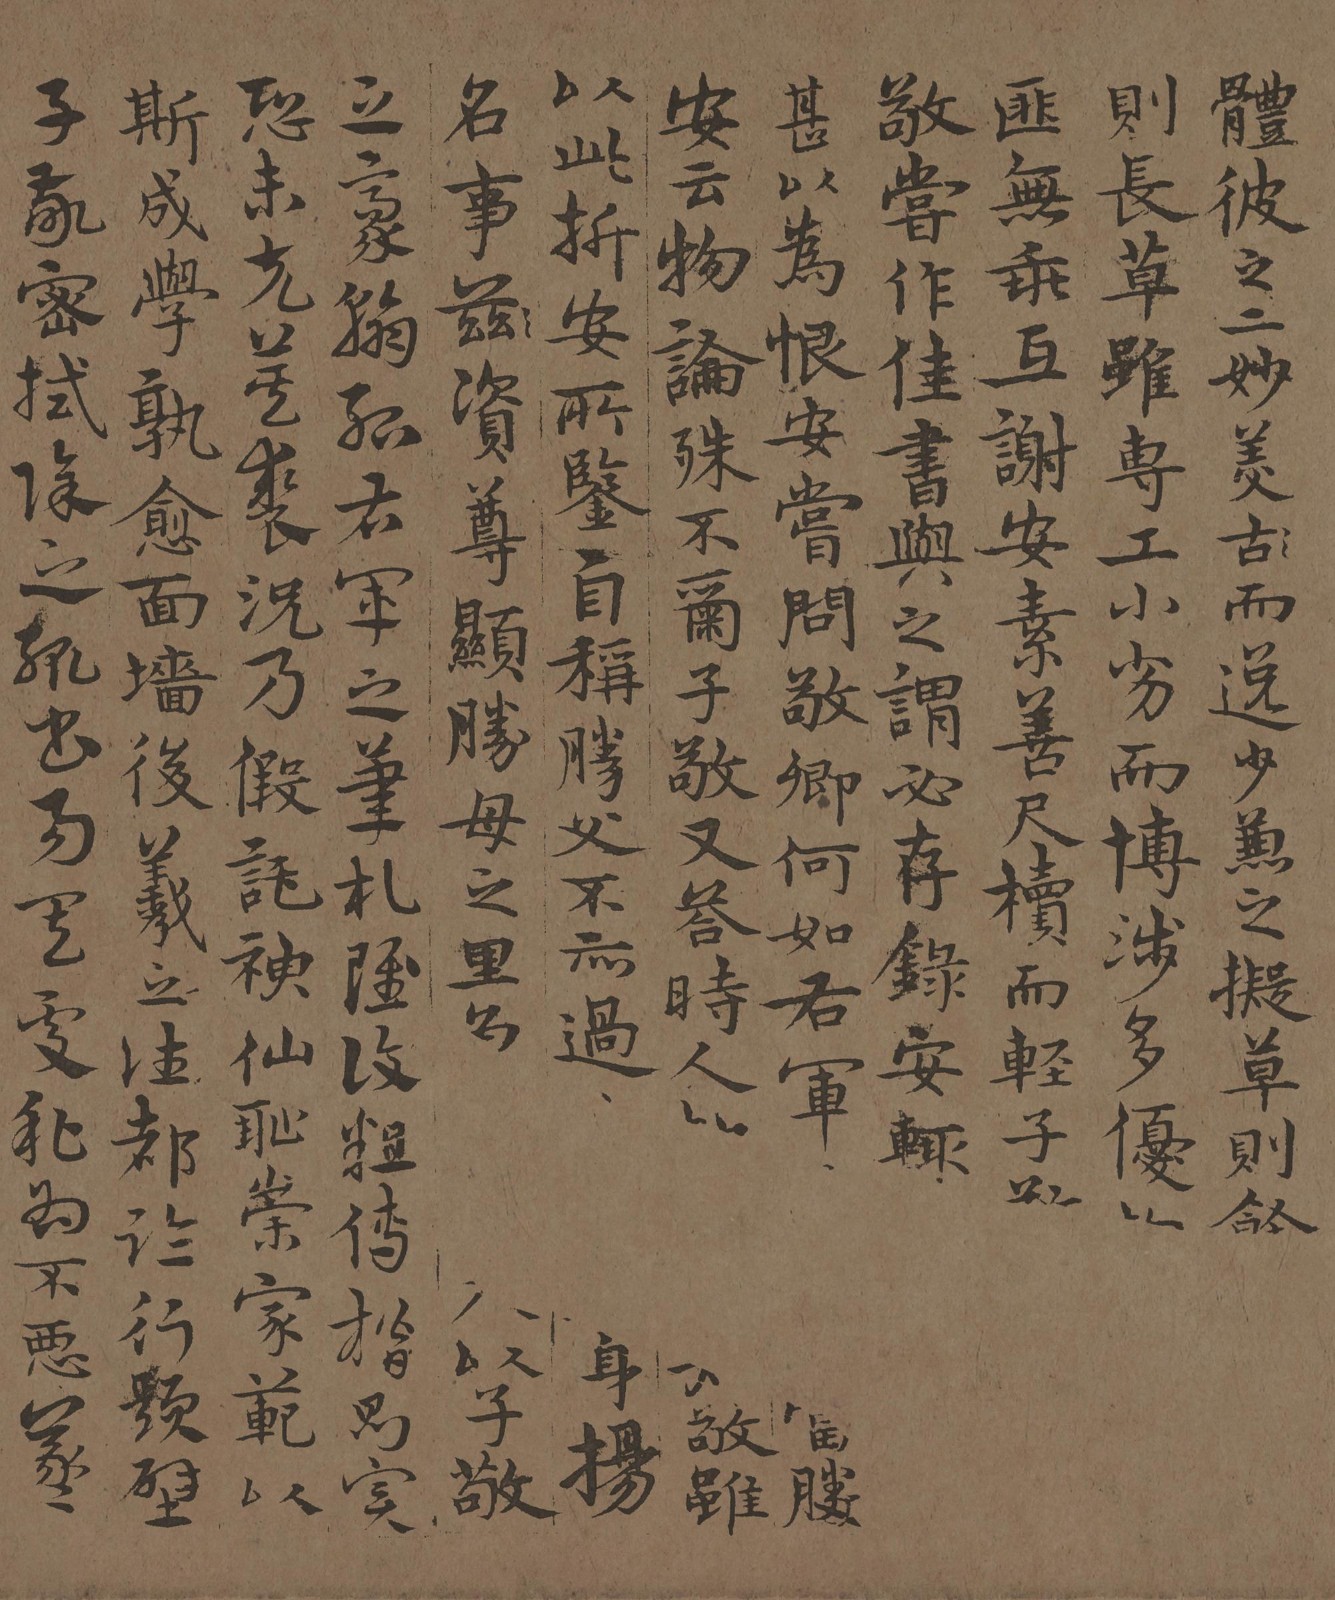 體彼之二妙羙古而逸少兼之擬草則餘
則長草雖專工小劣而博涉多優
匪無乖互謝安素善尺牘而輕子
敬嘗作佳書與之謂必存錄安輒
甚以為恨安嘗問敬卿何如右軍 勝
安云物論殊不爾子敬又荅時人 敬雖
以此折安所鑒自稱勝父不亦過 身揚
名事茲資尊顯勝母之里 以子敬
之豪翰紹右軍之筆札雖復粗傳楷則實
恐未克箕裘況乃假託神仙恥崇家範以
斯成學孰愈面墻後羲之往都臨行題壁
子敬密拭除之輒書易其處私為不惡羲之